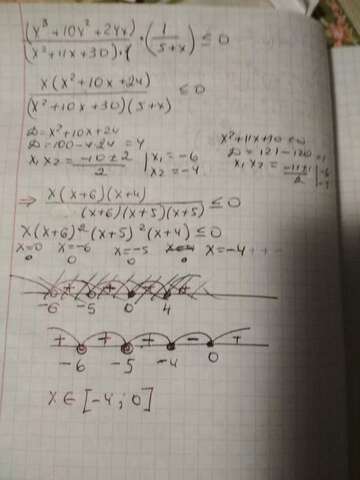 (x³+10x²+24x) / (x²+11x+30) · (1 / 5+x) ≤ 0
x(x²+10x+24) / (x²+10x+30)(5+x) ≤ 0
D=x²+10x+24
D=100-4·24=4
x₁ x₂ = -10±2 / 2 | x₁=-6
x₂=-4
D=121-120=1
x₁ x₂ = -11±1 / 2 | -6
-5
⇒ x(x+6)(x+4) / (x+6)(x+5)(x+5) ≤ 0
x(x+6)²(x+5)²(x+4) ≤ 0
x=0 x=-6 x=-5 x=4 x=-4
-6 -5 0 4
+ + + - +
-6 -5 -4 0
x ∈ [-4; 0]